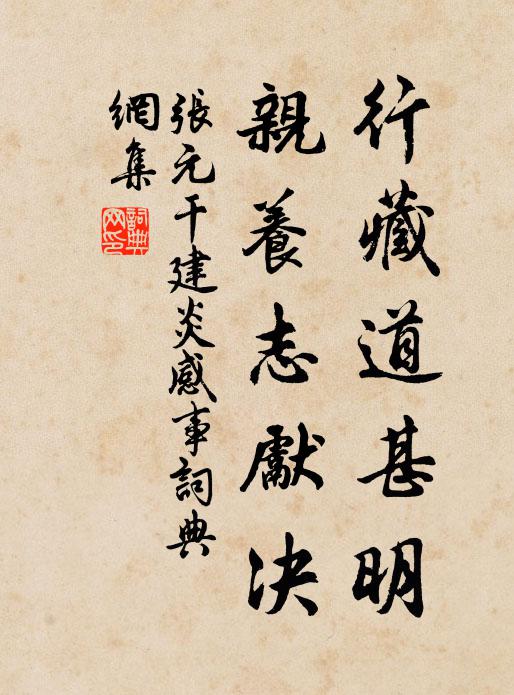 行藏道甚明
親養志獻决
張元干建炎感事詞典
網集
詞典
网印